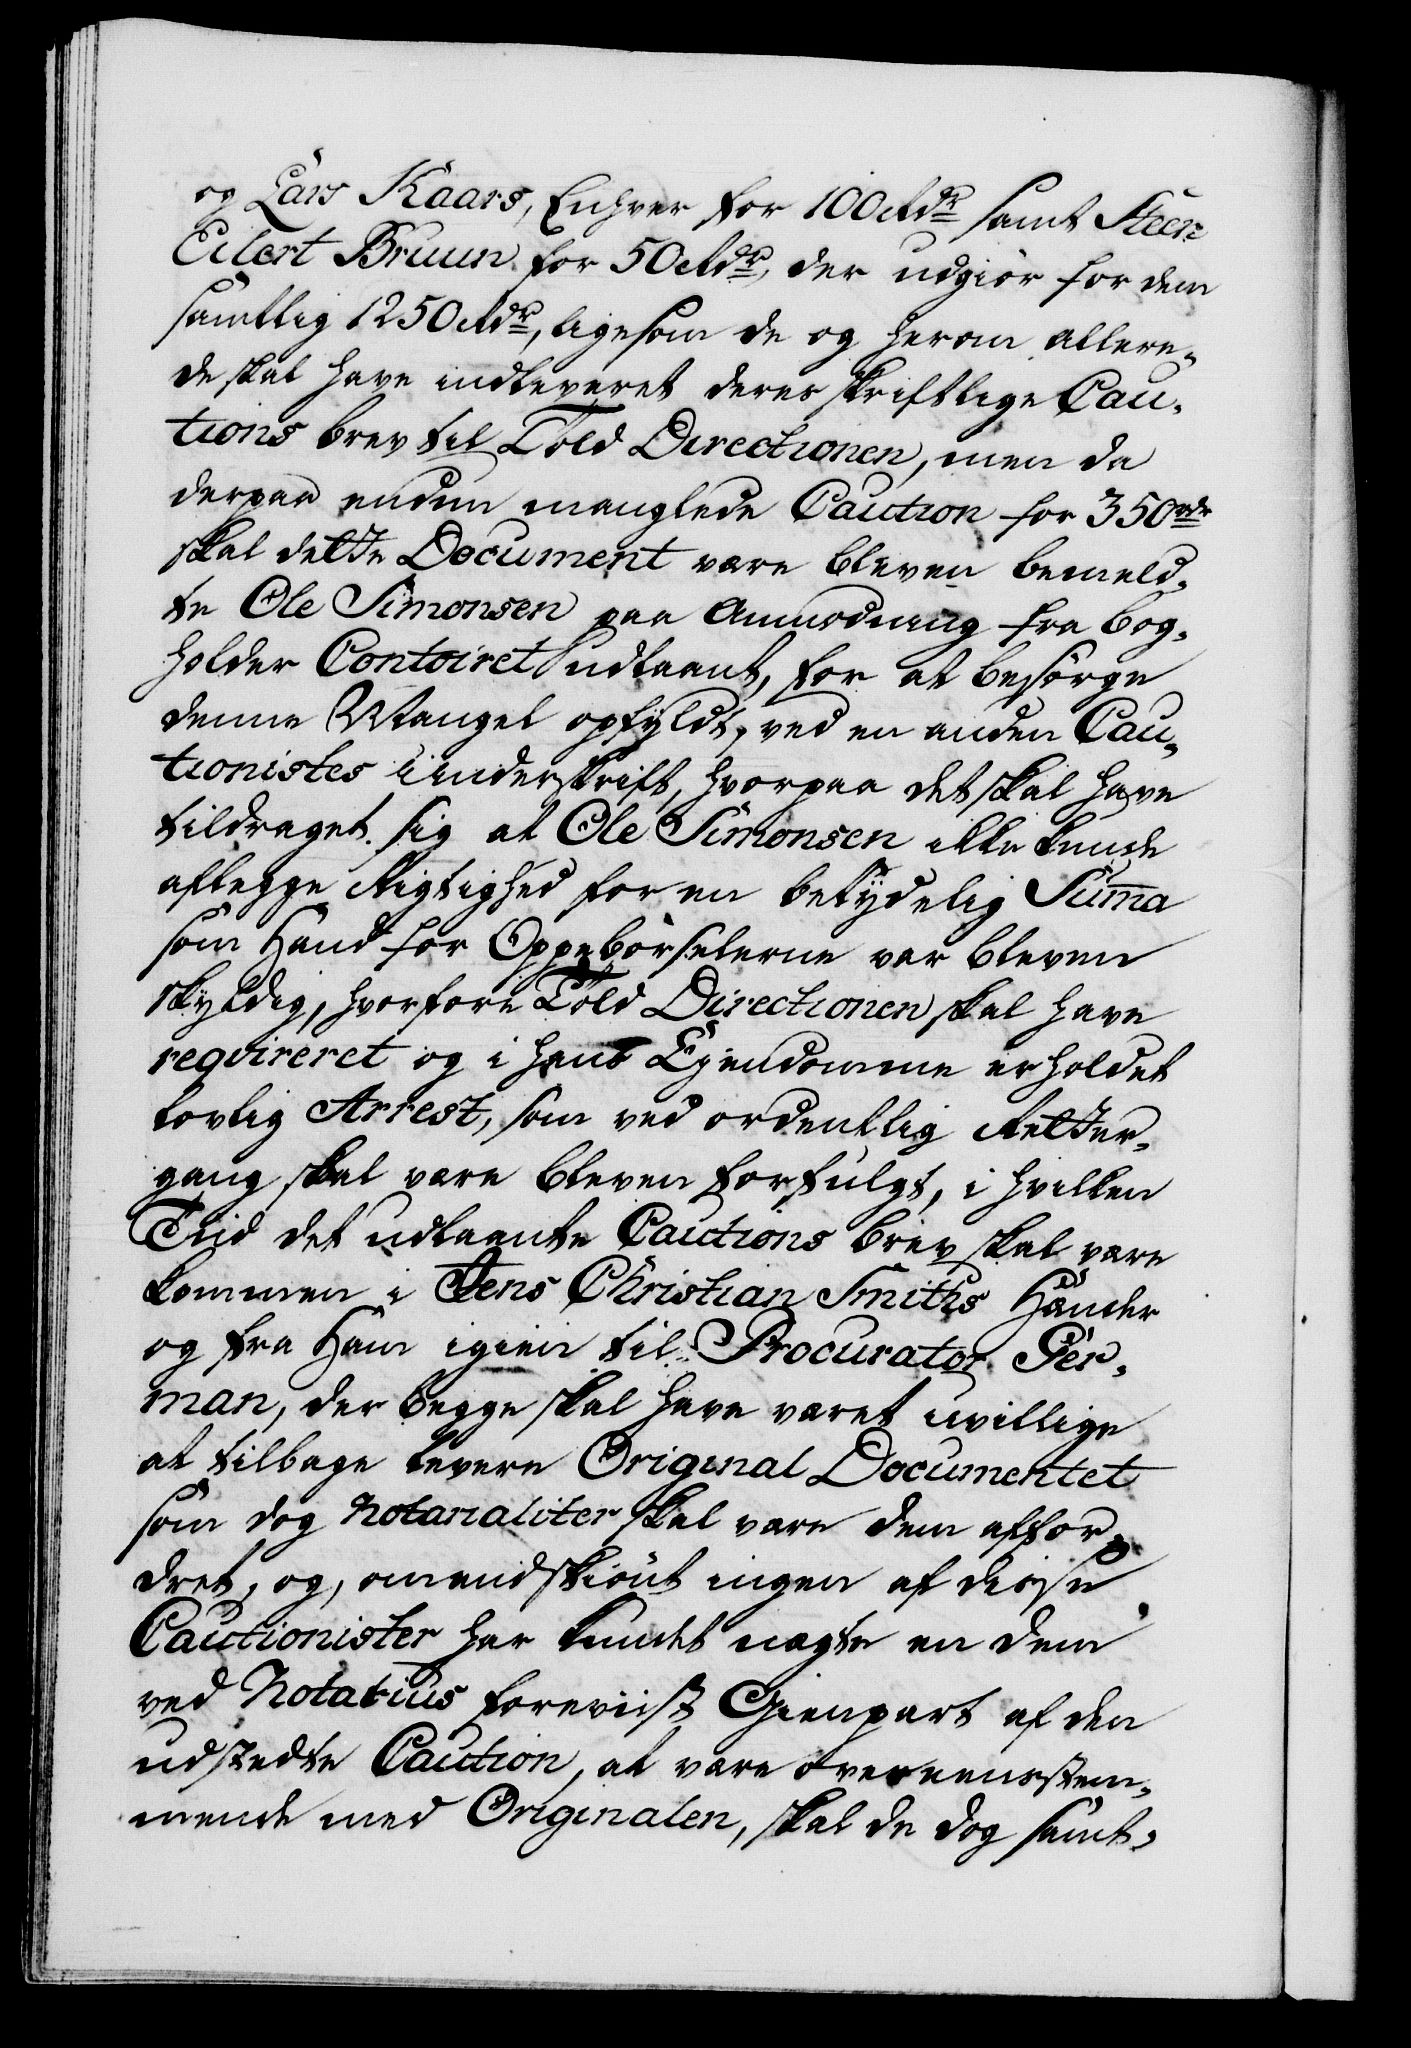 og Lars Kaars, Enhver for 100 Rdr samt Steen
Eilert Bruun for 50 Rdr, der udgiör for dem
samtlig 1250 Rdr, ligesom de og herom allere-
de skal have indleveret deres skriftlige Cau-
tions brev til Told Directionen, men da
derpaa endnu manglede Caution for 350 rdr
skal dette Document være bleven bemeld-
te Ole Simonsen paa Anmodning fra Bog-
holder Contoiret udlaant, for at besørge
denne Mangel opfyldt, ved en anden Cau-
tionistes Underskrift, hvorpaa det skal have
tildraget sig at Ole Simonsen ikke kunde
aflegge Rigtighed for en betydelig Summa
som Hand for Oppebørselerne var bleven
skyldig, hvorfore Told Directionen skal have
reqvireret og i hans Ejendomme erholdet
lovlig Arrest, som ved ordentlig Retter-
gang skal være bleven forfulgt, i hvilken
Tiid det udlaante Cautions brev skal være
kommen i Jens Christian Smiths Hænder
og fra Ham igien til Procurator Ger-
man, der begge skal have været uvillige
at tilbage levere Original Documentet
som dog Notarialiter skal være dem affor-
dret, og, omendskiönt ingen af disse
Cautionister har kundet nægte en dem
ved Notarius foreviist Gienpart af den
udstedte Caution, at være overeensstem-
mende med Originalen, skal de dog samt-